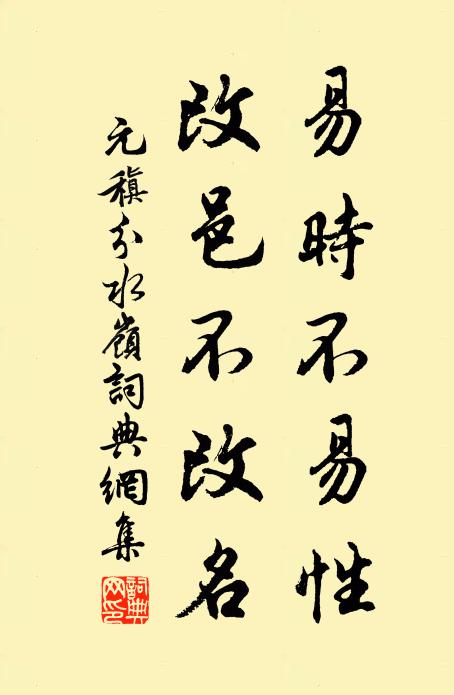 易時不易性
改邑不改名
元稹分水嶺詞典網集
詞典網印